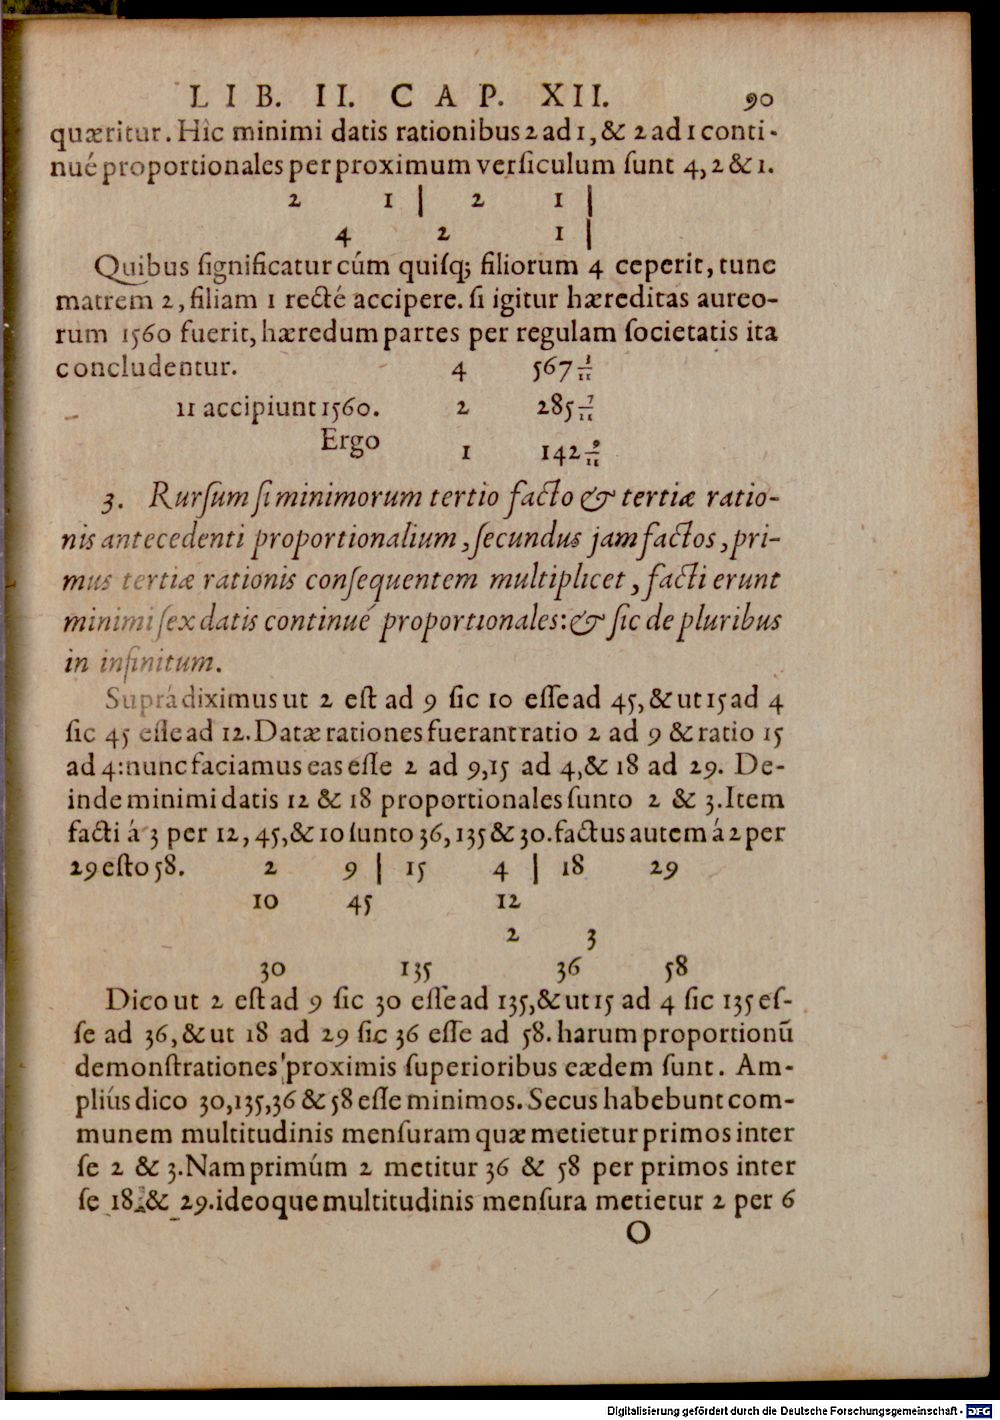 LIB. II. CAP. XII. 90
quæritur. Hîc minimi datis rationibus 2 ad 1, & 2 ad 1 conti-
nué proportionales per proximum versiculum ſunt 4, 2 & 1.
2 1 | 2 1 |
4 2 1 |
Quibus ſignificatur cúm quiſq; filiorum 4 ceperit, tunc
matrem 2, filiam 1 recté accipere. ſi igitur hæreditas aureo-
rum 1560 fuerit, hæredum partes per regulam ſocietatis ita
concludentur. 4 567 3/11
11 accipiunt 1560. 2 285 7/11
Ergo 1 142 9/11
3. Rurſum ſi minimorum tertio facto & tertiæ ratio-
nis antecedenti proportionalium, ſecundus jam factos, pri-
mus tertiæ rationis conſequentem multiplicet, facti erunt
minimi ſex datis continué proportionales: & ſic de pluribus
in infinitum.
Suprá diximus ut 2 eſt ad 9 ſic 10 eſſe ad 45, & ut 15 ad 4
ſic 45 eſſe ad 12. Datæ rationes fuerant ratio 2 ad 9 & ratio 15
ad 4: nunc faciamus eas eſſe 2 ad 9, 15 ad 4, & 18 ad 29. De-
inde minimi datis 12 & 18 proportionales ſunto 2 & 3. Item
facti á 3 per 12, 45, & 10 ſunto 36, 135 & 30. factus autem á 2 per
29 eſto 58. 2 9 | 15 4 | 18 29
10 45 12
2 3
30 135 36 58
Dico ut 2 eſt ad 9 ſic 30 eſſe ad 135, & ut 15 ad 4 ſic 135 eſ-
ſe ad 36, & ut 18 ad 29 ſic 36 eſſe ad 58. harum proportionū
demonſtrationes proximis ſuperioribus eædem ſunt. Am-
pliús dico 30, 135, 36 & 58 eſſe minimos. Secus habebunt com-
munem multitudinis menſuram quæ metietur primos inter
ſe 2 & 3. Nam primúm 2 metitur 36 & 58 per primos inter
ſe 18 & 29. ideoque multitudinis menſura metietur 2 per 6
O
Digitalisierung gefördert durch die Deutsche Forschungsgemeinschaft - DFG